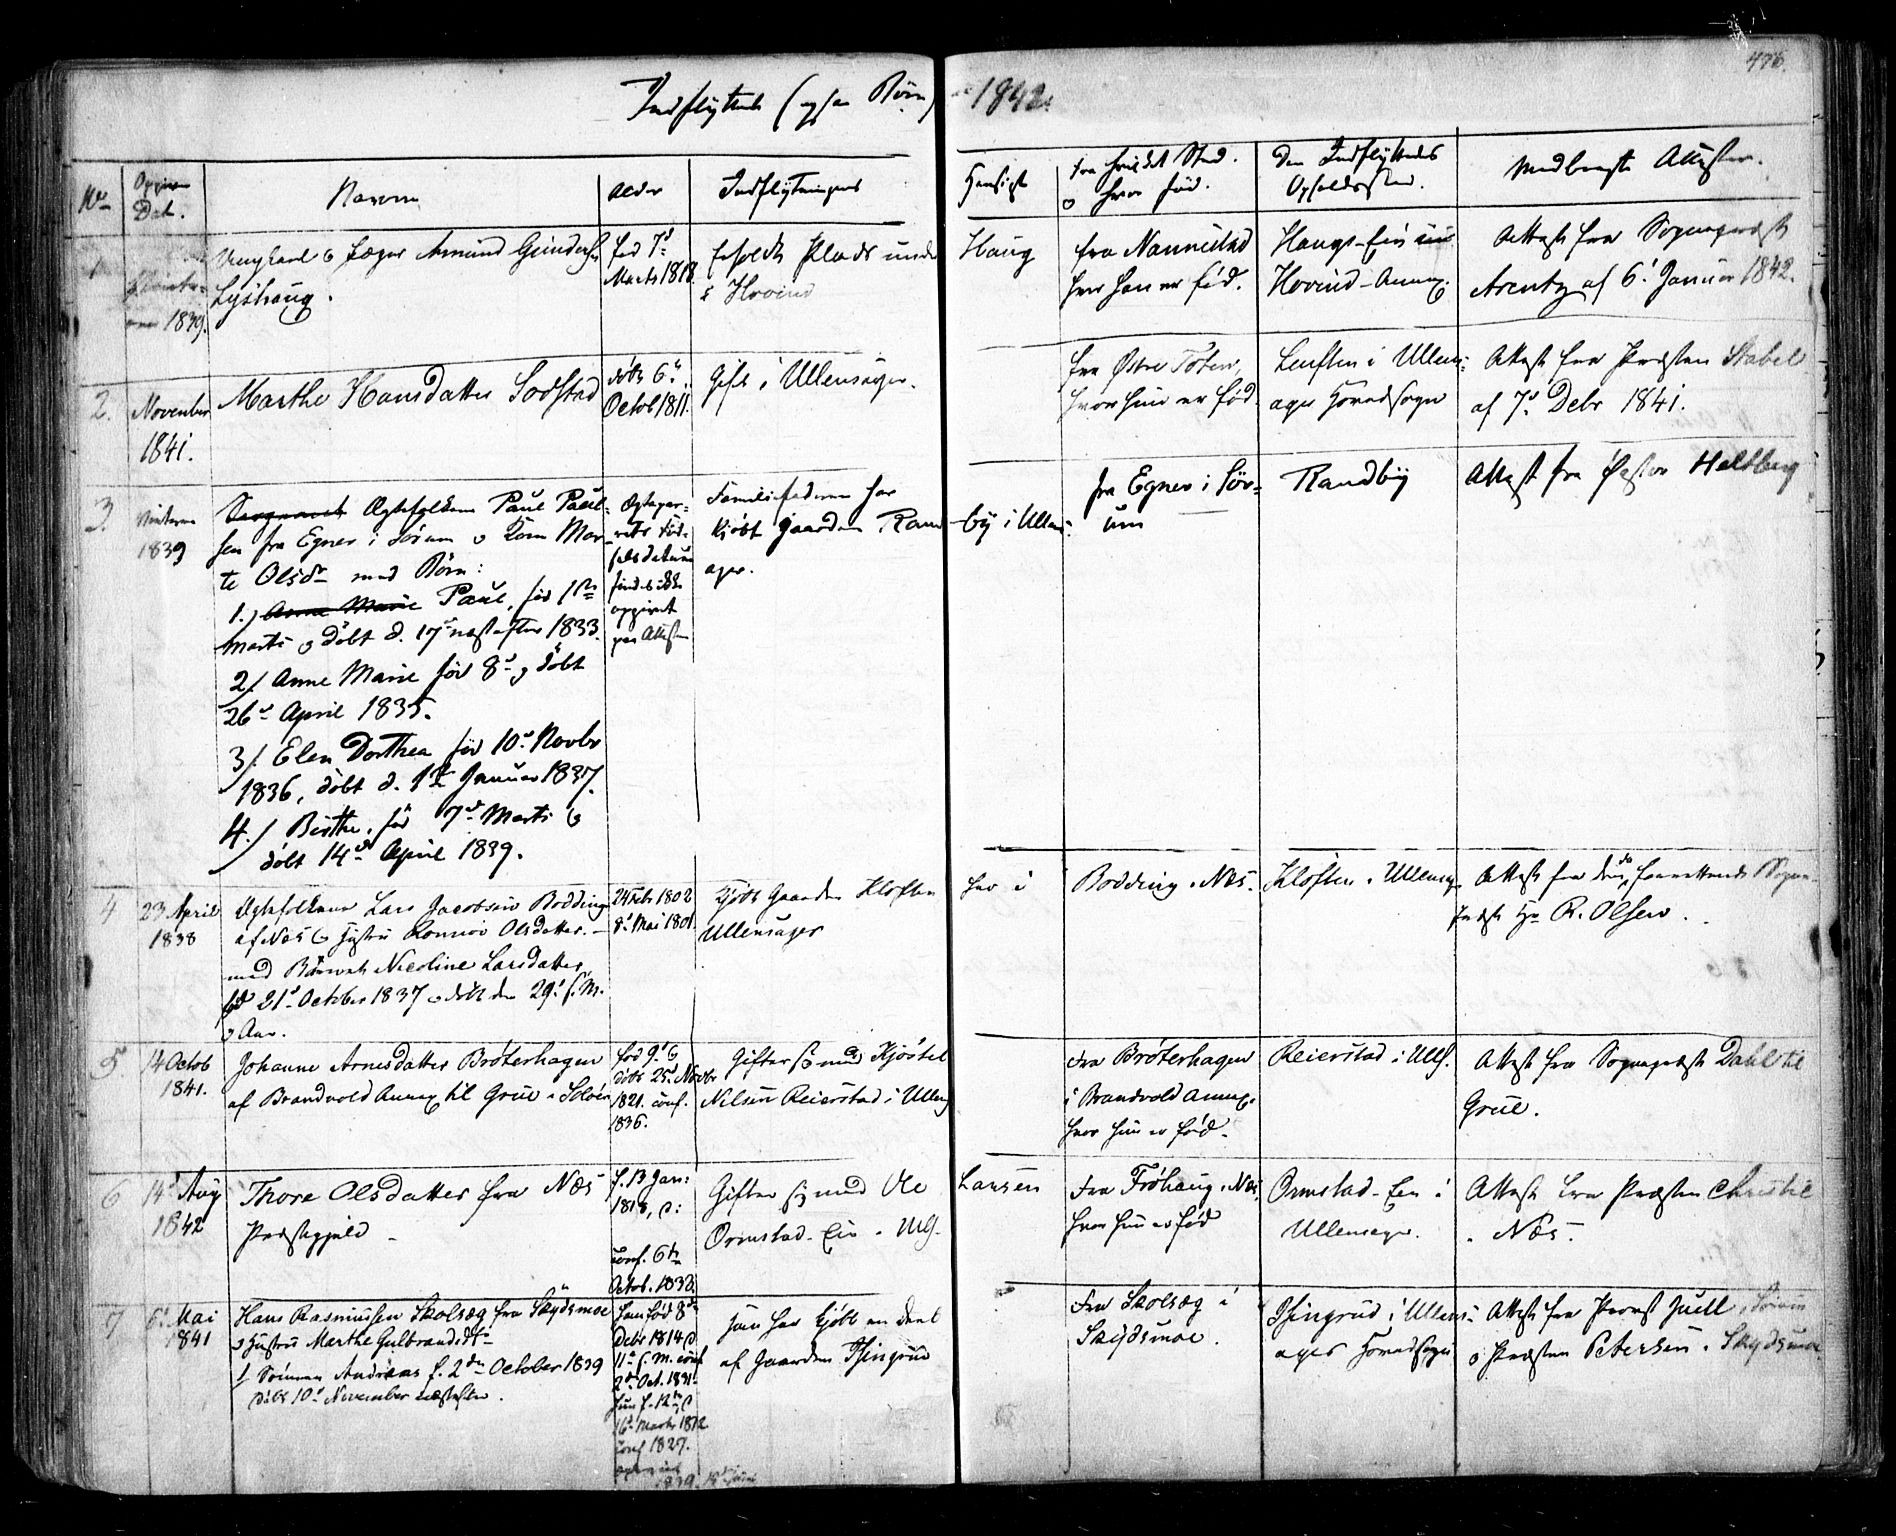 476.
Indflyttede (ogsaa Børn) 1842.
No
Dat.
Navn
Alder
Indflytningens
Hensigt
fra hvilket Sted
o hvor fød.
Den Indflyttedes
Opholdssted.
Medbragte Attester.
1
1839.
Ungkarl o Jæger Amund Gundersen
Lyshaug.
fød 7de
Marts 1818
Plads under
Hovind
Haug
fra Nannestad
hvor han er fød.
Haugs-Eie
Hovind-Annex.
Attest fra Sognepræst
Arentz af 6te Januar 1842.
2.
November
1841.
Marthe Hansdatter Sodstad
døbt 6te
Octob 1811.
Gift i Ullensager.
fra Østre Toten,
hvor hun er fød.
i Ullens-
ager Hovedsogn
Attest fra Præsten Stabel
af 7de Debr 1841.
3.
Vinteren
1839
Ægtefolkene Paul Paul-
sen fra Egner i Sørum o Kone Mar-
te Olsdr med Børn:
1.) Anne Marie Paul, fød 1ste
Marts o døbt d. 17de næstefter 1833.
2). Anne Marie fød 8de o døbt
26de April 1835.
3). Elen Dorthea fød 10de Novbr
1836, døbt d. 1ste Januar 1837.
4.) Birthe, fød 7de Marts o
døbt 14de April 1839.
Ægtepar-
rets Fød-
selsdatum
findes ikke
opgivet
paa Attesten
Familiefaderen har
kjøbt Gaarden Rand-
by i Ullens-
ager.
fra Egner i Sør-
um
Randby
Attest fra Pastor Heltberg
4
23 April
1838
Ægtefolkene Lars Jacobsen Bodding
af Næs o Hustru Ronnou Olsdatter.
med Barnet Nicoline Larsdatter,
fød 21de October 1837 o døbt den 29de s. M.
o Aar.
24 Feb 1802
8de Mai 1801.
Kjøbt Gaarden Kløften
her i
Ullensager
Bodding i Næs.
Kløften i Ullensag.
Attest fra den da forrettende Sogne-
præst Hr R. Olsen.
5
14 Octob
1841.
Johanne Arnesdatter Brøterhagen
af Brandvold Annex til Grue i Soløer
fød 9de o
døbt 25de Novbr
1821. conf.
1836.
Gifter sig med Kjøstel
Nelsen Reierstad i Ullens.
fra Brøterhagen
i Brandvold Annex,
hvor hun er fød.
Reierstad i Ulls.
Attest fra Sognepræst Dahl til
Grue.
6
14de Aug
1842
Thore Olsdatter fra Næs
Præstegjeld
f. 13 Jan:
1818,
conf. 6te
Octob. 1833.
Gifter sig med Ole
Larsen
Ormstad-Eie i Ulls.
fra Frøhaug i Næs,
hvor hun er fød
Ormstad-Eie i
Ullensager.
Attest fra Præsten Christie
i Næs.
7
6te Mai
1841
Hans Rasmussen Skolsæg fra Skydsmoe
o Hustru Marthe Gulbrandsdtr
Sønnen Andreas f. 2den October 1839
døbt 10de November næstefter.
Han fød 8de
Debr 1814
11te s. M. conf
2den Oct. 1831.
Hun f. 12te
16de Marts 1812
conf 1827.
han har kjøbt en Deel
af Gaarden Thingrud
fra Skolsæg i
Skydsmoe.
Thingrud i Ullens-
ager Hovedsogn
Attest fra Provst Juell i Sørum
o Præsten Petersen i Skydsmoe